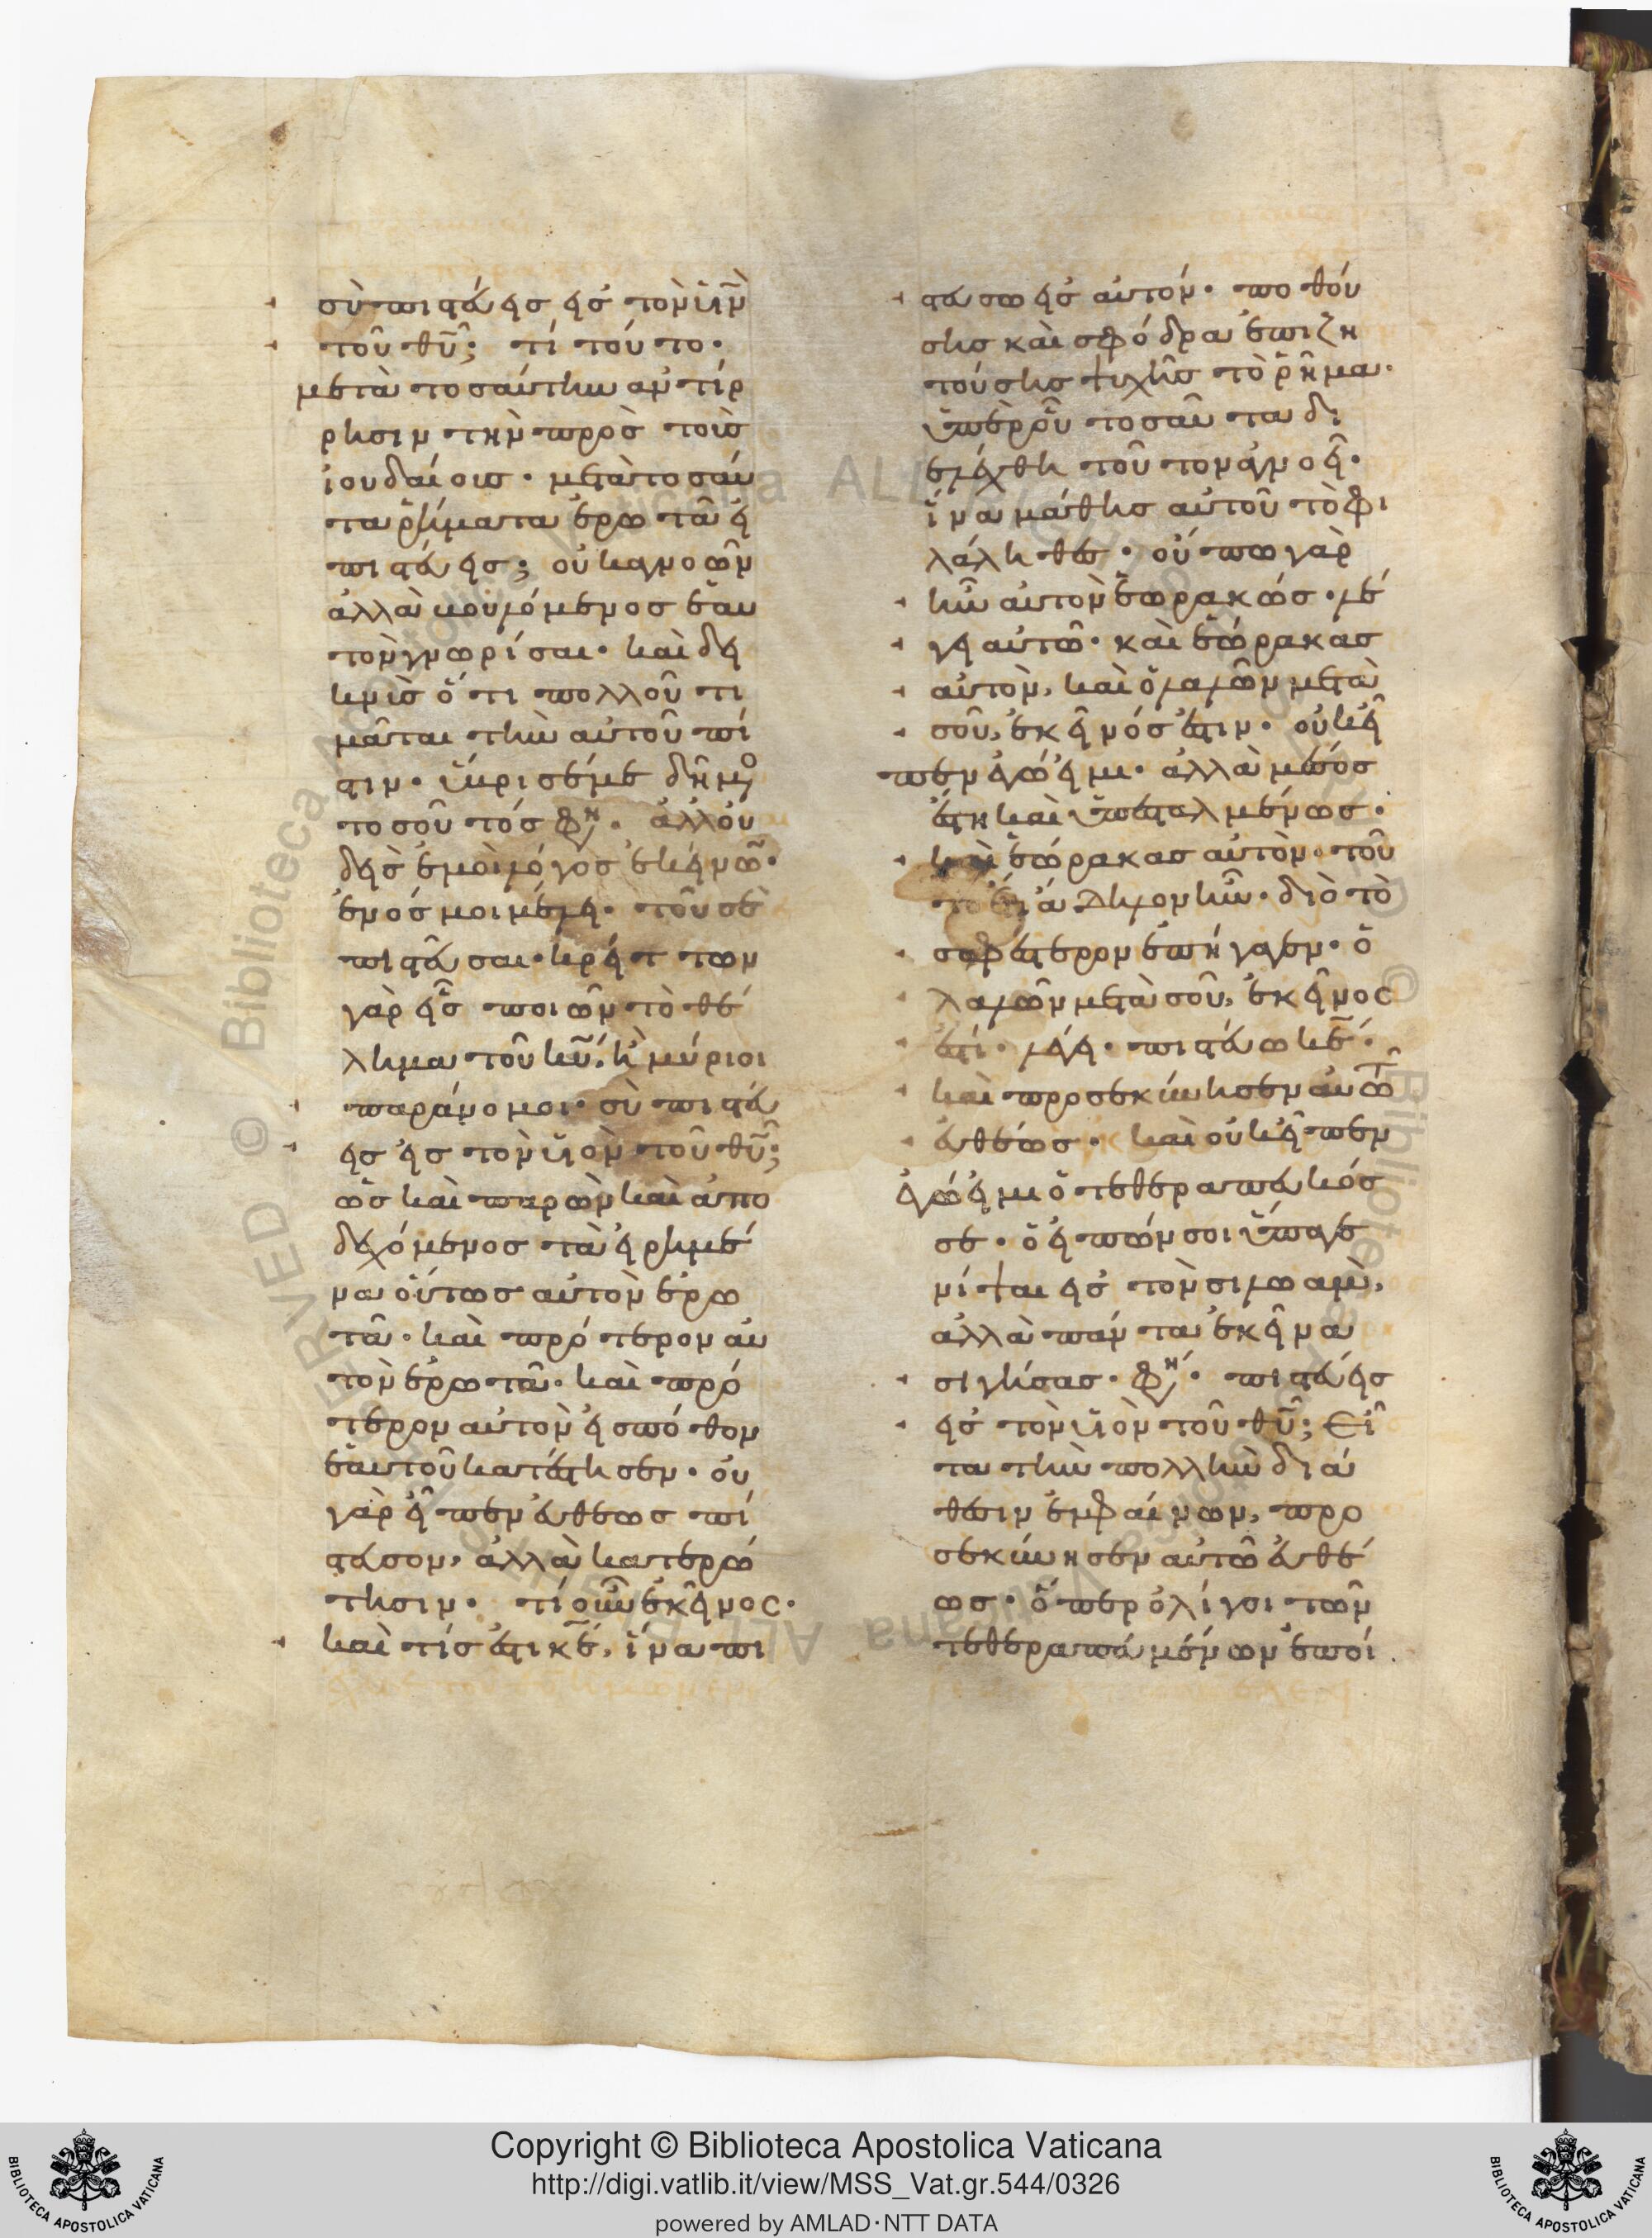 σὺ πιστεύεις εἰς τὸν υἱν̀
τοῦ θῡ; τί τοῦτο·
μετὰ τοσαύτην ἀντίρ
ρησιν τὴν πρὸς τοὺς
ἰουδαίους· μετὰ τοσαύ
τα ῥήματα ἐρωτᾶ εἰ
πιστεύεις; οὐκ ἀγνοῶν
ἀλλὰ βουλόμενος ἑαυ
τὸν γνωρίσαι· καὶ δει
κνὺς ὅτι πολλοῦ τι
μᾶται τὴν αὐτοῦ πί
στιν· ὕβρισέ με δῆμο
τοσοῦτός φη· ἀλλ' οὐ
δεὶς ἐμοὶ λόγος ἐκείνω̅·
ἑνός μοι μέλει· τοῦ σὲ
πιστεῦσαι· κρείττων
γὰρ εἷς ποιῶν τὸ θέ
λημα τοῦ κῡ, ἢ μύριοι
παράνομοι· σὺ πιστεύ
εις εἰς τὸν υἱὸν τοῦ θῡ;
ὡς καὶ παρὼν καὶ ἀπο
δεχόμενος τὰ εἰρημέ
να οὕτως αὐτὸν ἐρω
τᾶ· καὶ πρότερον αὐ
τὸν ἐρωτᾶ· καὶ πρό
τερον αὐτὸν εἰς πόθον
ἑαυτοῦ κατέστησεν· οὐ
γὰρ εἶπεν εὐθέως πί
στευσον, ἀλλὰ κατερώ
τησιν· τί οὖν ἐκεῖνος·
καὶ τίς ἐστι κε̅, ἵνα πι
στεύσω εἰς αὐτόν· ποθού
σης καὶ σφόδρα ἐπιζη
τούσης ψυχῆς τὸ ῥῆμα·
ὑπὲρ οὗ τοσαῦτα δι
ελέχθη τοῦτον ἀγνοεῖ·
ἵνα μάθης αὐτοῦ τὸ φι
λάληθες· οὔπω γὰρ
ἦν αὐτὸν ἑωρακώς· λέ
γει αὐτῶ· καὶ ἑώρακας
αὐτὸν, καὶ ὁ λαλῶν μετὰ
σοῦ, ἐκεῖνός ἐστιν· οὐκ εἶ
πεν ἐγώ εἰμι· ἀλλὰ μέσος
ἔτι καὶ ὑπεσταλμένως·
καὶ ἑώρακας αὐτὸν· τοῦ
το ἔτι ἄδηλον ἦν· διὸ τὸ
σαφέστερον ἐπήγαγεν· ὁ
λαλῶν μετὰ σοῦ, ἐκεῖνος
ἐστί· λέγει· πιστεύω κε̅·
καὶ προσεκύνησεν αὐτῶ
εὐθέως· καὶ οὐκ εἶπεν
ἐγώ εἰμι ὁ τεθεραπευκώς
σε· ὁ εἰπών σοι ὕπαγε
νίψαι εἰς τὸν σιλωὰμ,
ἀλλὰ πάντα ἐκεῖνα
σιγήσας· φη· πιστεύεις
εἰς τὸν υἱὸν τοῦ θῡ; Εἶ
τα τὴν πολλὴν διά
θεσιν ἐμφαίνων, προ
σεκύνησεν αὐτῶ εὐθέ
ως· ὅπερ ὀλίγοι τῶν
τεθεραπευμένων ἐποί
Copyright © Biblioteca Apostolica Vaticana
http://digi.vatlib.it/view/MSS_Vat.gr.544/0326
powered by AMLAD·NTT DATA
BIBLIOTECA APOSTOLICA VATICANA
BIBLIOTECA APOSTOLICA VATICANA